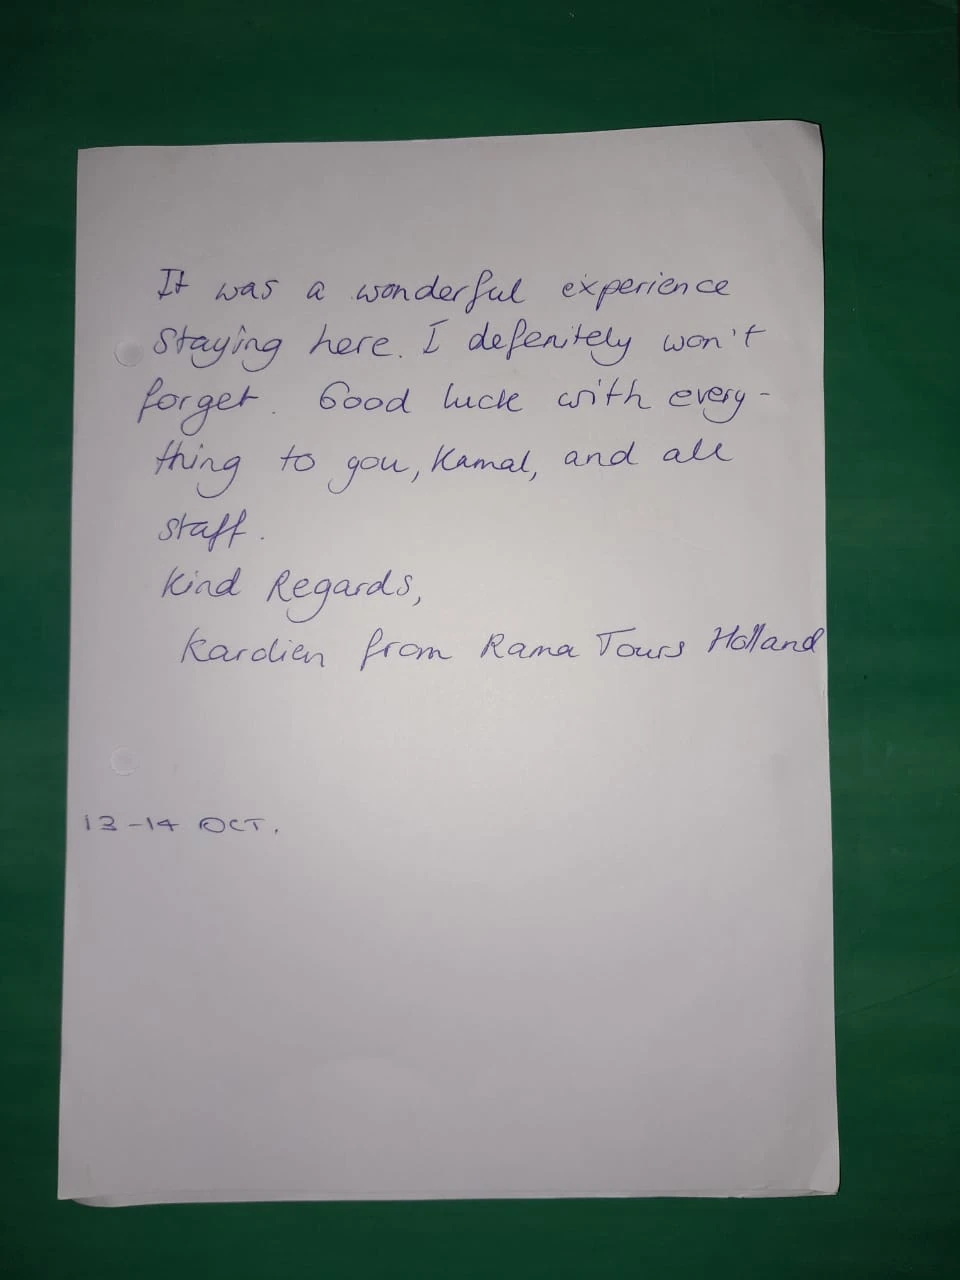 It was a wonderful experience
staying here. I defenitely won't
forget. Good luck with every-
thing to you, Kamal, and all
staff.
Kind Regards,
Kardien from Rama Tours Holland
13-14 OCT.